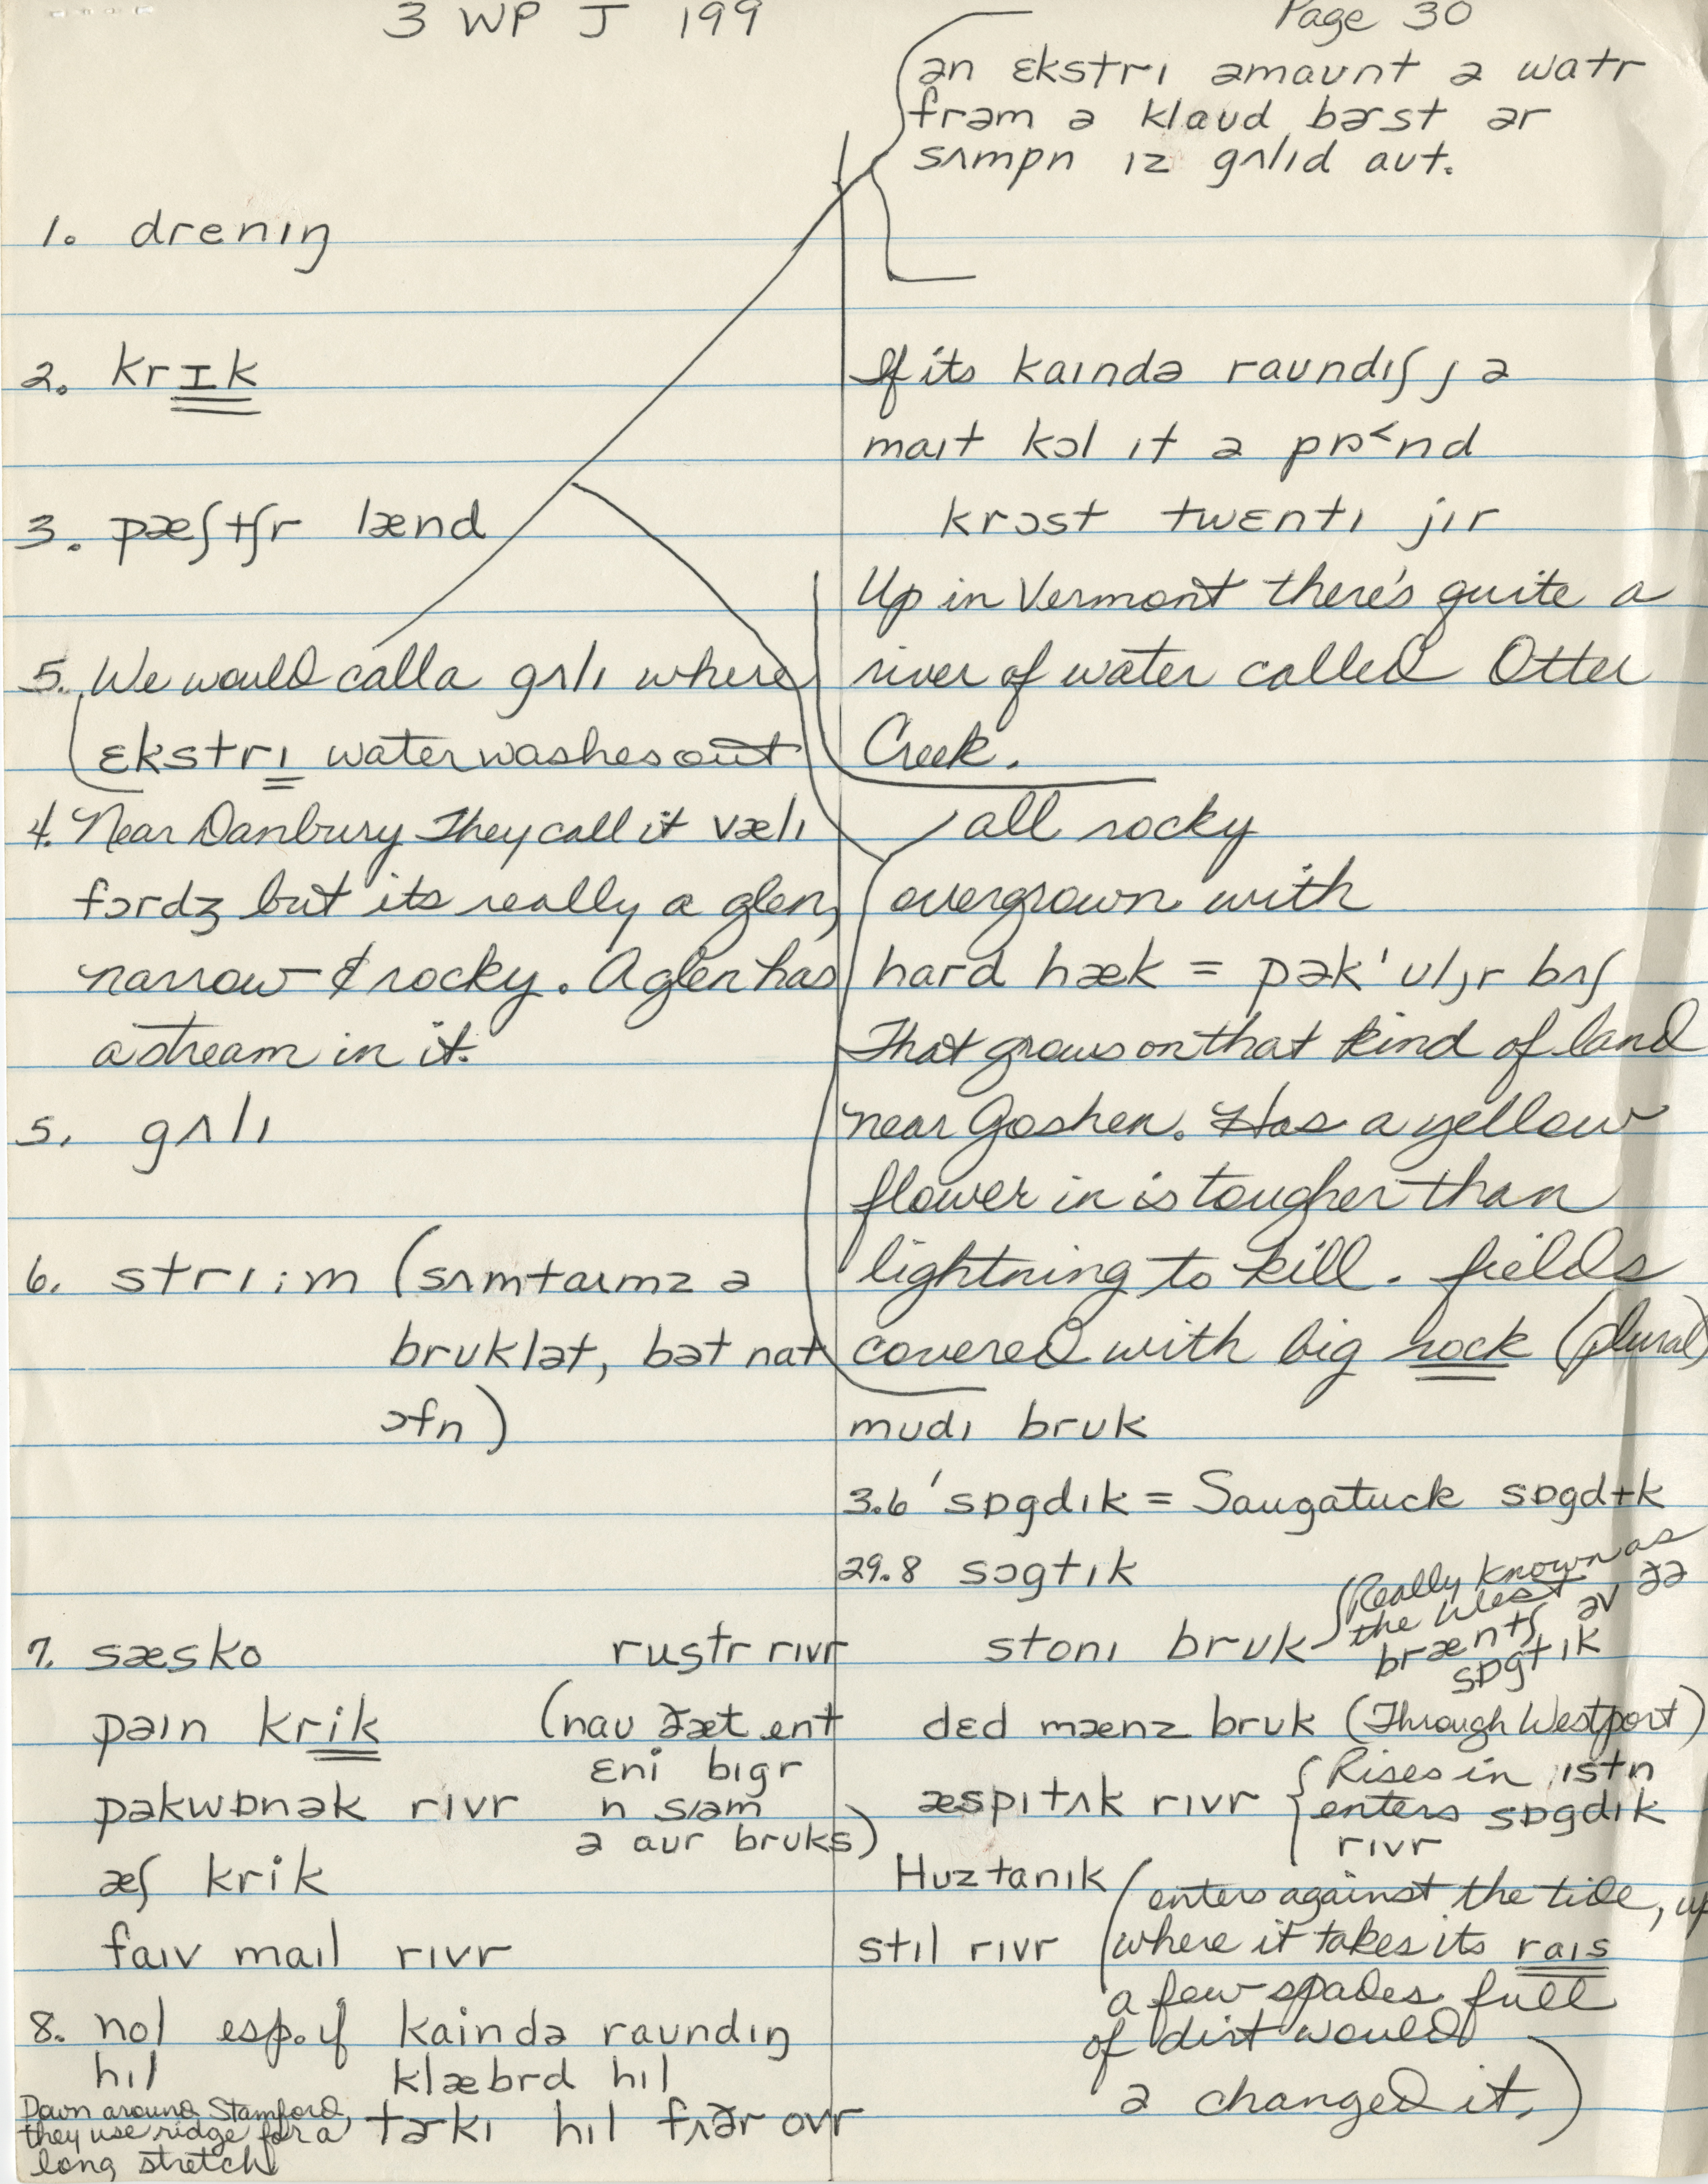 3 WP J 199
Page 30
ən ɛkstrɪ əmaʊnt ə watr
frəm ə klaʊd bɚst ər
sʌmpn ɪz gʌlɪd aʊt.
1. drenɪŋ
2. krɪk
3. pæʃtʃr lænd
5. We would call a gʌlɪ where
ɛkstrɪ water washes out
4. Near Danbury They call it vælɪ
fɔrdʒ but its really a glen,
narrow & rocky. A glen has
a stream in it.
5. gʌlɪ
6. strɪ:m (sʌmtaɪmz ə
brʊklət, bət nat
ɔfn)
7. sæsko rustr rɪvr
paɪn krik (naʊ ðæt ent
ɛni bɪgr
pəkwɒnək rɪvr n sʌəm
ə aʊr brʊks)
æʃ krik
faɪv maɪl rɪvr
8. nol esp. if kaində raʊndɪŋ
hɪl klæbrd hɪl
Down around Stamford, tɚkɪ hɪl fɚðr ovr
they use ridge for a
long stretch
If its kaɪndə raʊndɪʃ, ə
maɪt kɔl ɪt ə pɒ˂nd
krɔst twɛntɪ jɪr
Up in Vermont there's quite a
river of water called Otter
Creek.
all rocky
overgrown with
hard hæk = pək'ʊljr bʌʃ
That grows on that kind of land
near Goshen. Has a yellow
flower in is tougher than
lightning to kill. fields
covered with big rock (plural)
mʊdɪ brʊk
3.6 'sɒgdɪk = Saugatuck sɒgdɨk
29.8 sɔgtɪk
stonɪ brʊk (Really known as
the West
bræntʃ əv ðə
sɒgtɪk
dɛd mænz brʊk (Through Westport)
æspɪtʌk rɪvr {Rises in istn
enters sɒgdɪk
rɪvr
Huztanɪk
stɪl rɪvr (enters against the tide, up
where it takes its raɪs
a few spades full
of dirt would
ə changed it.)